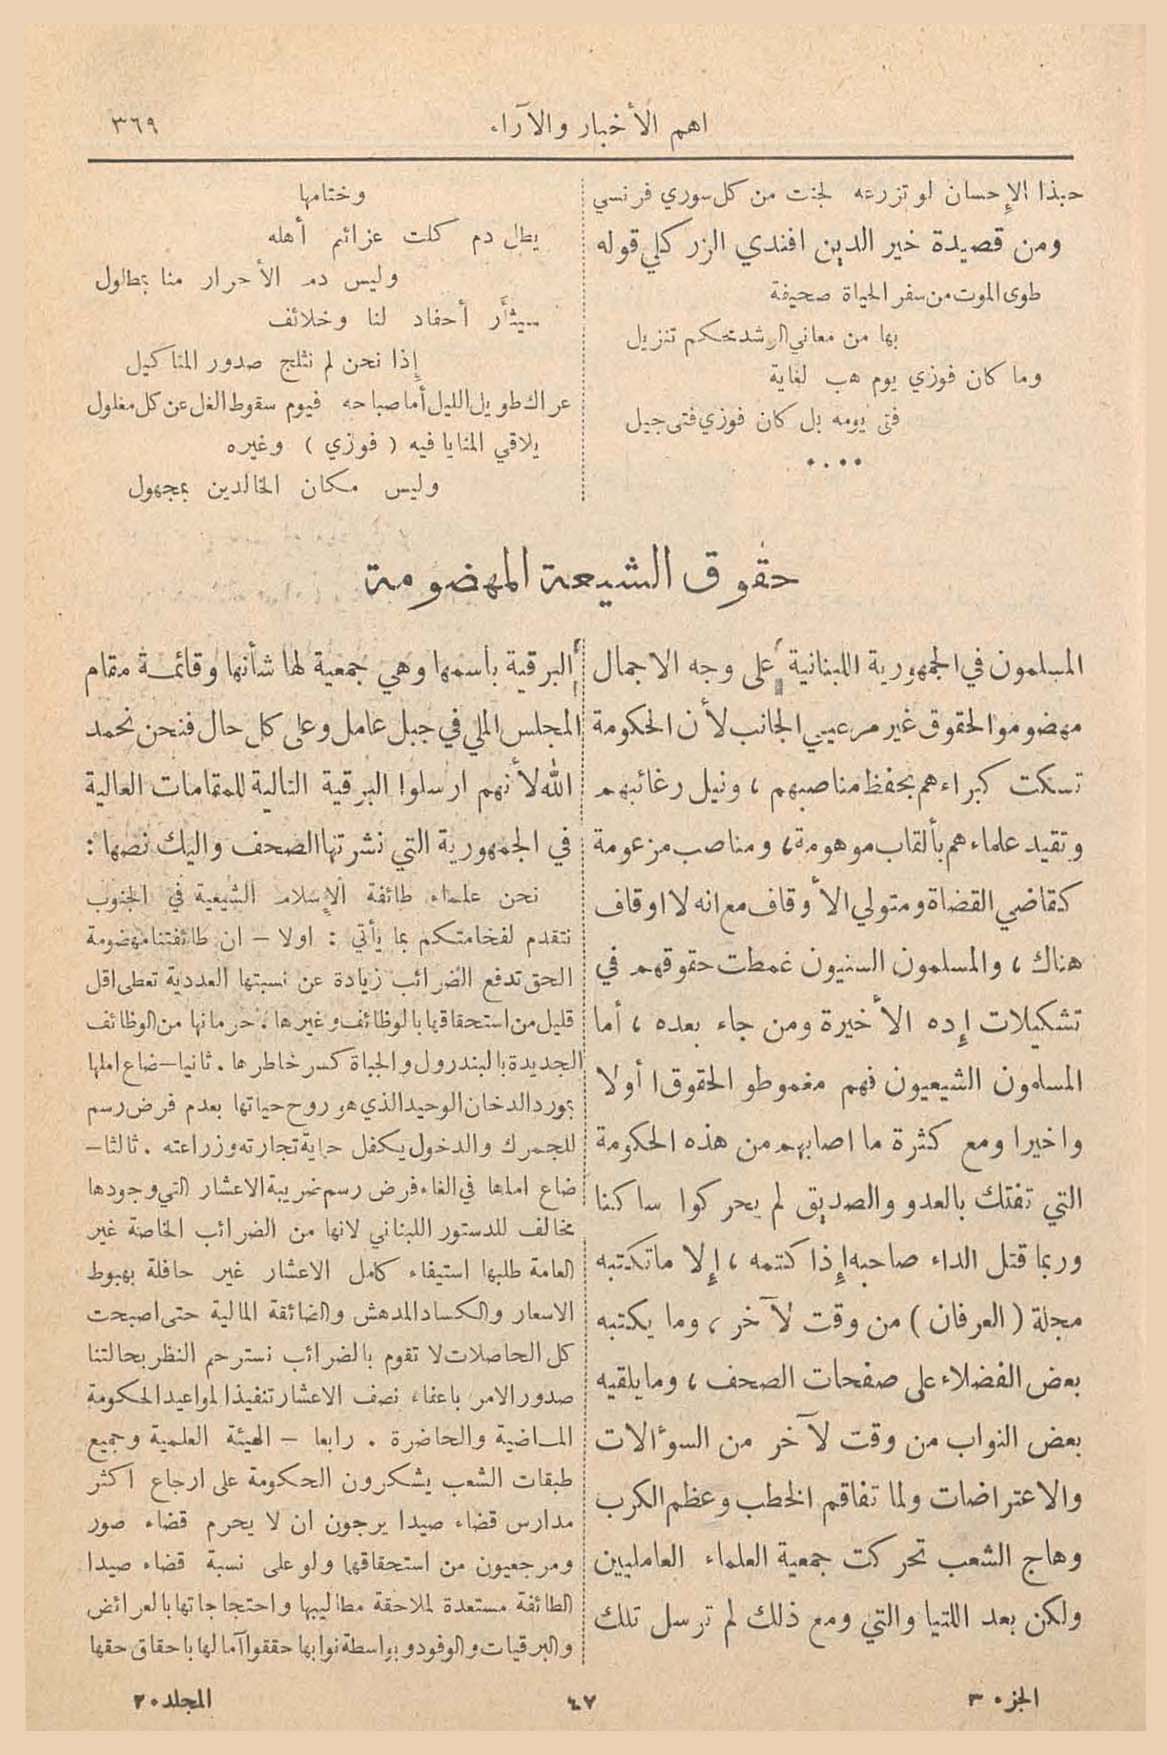 اهم الأخبار والآراء
٣٦٩
حبذا الإحسان لو تزرعه لجنت من كل سوري فرنسي
ومن قصيدة خير الدين افندي الزركلي قوله
طوى الموت من سفر الحياة صحيفة
بها من معاني الرشد محكم تنزيل
وما كان فوزي يوم هب لغاية
فتى يومه بل كان فوزي فتى جيل
....
وختامها
يطل دم كلت عزائم أهله
وليس دم الأحرار منا بمطلول
سيثأر أحفاد لنا وخلائف
إذا نحن لم نثلج صدور المثاكيل
عراك طويل الليل أما صباحه فيوم سقوط الغل عن كل مغلول
يلاقي المنايا فيه ( فوزي ) وغيره
وليس مكان الخالدين بمجهول
حقوق الشيعة المهضومة
المسلمون في الجمهورية اللبنانية على وجه الاجمال
مهضومو الحقوق غير مرعيي الجانب لأن الحكومة
تسكت كبراءهم بحفظ مناصبهم ، ونيل رغائبهم
وتقيد علماءهم بألقاب موهومة ، ومناصب مزعومة
كقاضي القضاة ومتولي الأوقاف مع انه لا اوقاف
هناك ، والمسلمون السنيون غمطت حقوقهم في
تشكيلات إده الأخيرة ومن جاء بعده ، أما
المسلمون الشيعيون فهم مغموطو الحقوق أولا
واخيرا ومع كثرة ما اصابهم من هذه الحكومة
التي تفتك بالعدو والصديق لم يحركوا ساكنا
وربما قتل الداء صاحبه إذا كتمه ، إلا ما تكتبه
مجلة ( العرفان ) من وقت لآخر ، وما يكتبه
بعض الفضلاء على صفحات الصحف ، وما يلقيه
بعض النواب من وقت لآخر من السوءالات
والاعتراضات ولما تفاقم الخطب وعظم الكرب
وهاج الشعب تحركت جمعية العلماء العامليين
ولكن بعد اللتيا والتي ومع ذلك لم ترسل تلك
البرقية باسمها وهي جمعية لها شأنها وقائمة مقام
المجلس الملي في جبل عامل وعلى كل حال فنحن نحمد
الله لأنهم ارسلوا البرقية التالية للمقامات العالية
في الجمهورية التي نشرتها الصحف واليك نصها :
نحن علماء طائفة الإسلام الشيعية في الجنوب
نتقدم لفخامتكم بما يأتي : اولا – ان طائفتنا مهضومة
الحق تدفع الضرائب زيادة عن نسبتها العددية تعطى اقل
قليل من استحقاقها بالوظائف وغيرها . حرمانها من الوظائف
الجديدة بالبندرول والجباة كسر خاطرها . ثانيا – ضاع املها
بمورد الدخان الوحيد الذي هو روح حياتها بعدم فرض رسم
للجمرك والدخول يكفل حماية تجارته وزراعته . ثالثا –
ضاع املها في الغاء فرض رسم ضريبة الاعشار التي وجودها
مخالف للدستور اللبناني لانها من الضرائب الخاصة غير
العامة طلبها استيفاء كامل الاعشار غير حافلة بهبوط
الاسعار والكساد المدهش والضائقة المالية حتى اصبحت
كل الحاصلات لا تقوم بالضرائب نسترحم النظر بحالتنا
صدور الامر باعفاء نصف الاعشار تنفيذا لمواعيد الحكومة
الماضية والحاضرة . رابعا – الهيئة العلمية وجميع
طبقات الشعب يشكرون الحكومة على ارجاع اكثر
مدارس قضاء صيدا يرجون ان لا يحرم قضاء صور
ومرجعيون من استحقاقهما ولو على نسبة قضاء صيدا
الطائفة مستعدة لملاحقة مطاليبها واحتجاجاتها بالعرائض
والبرقيات والوفود وبواسطة نوابها حققوا آمالها باحقاق حقها
الجزء ٣
٤٧
المجلد ٢٠